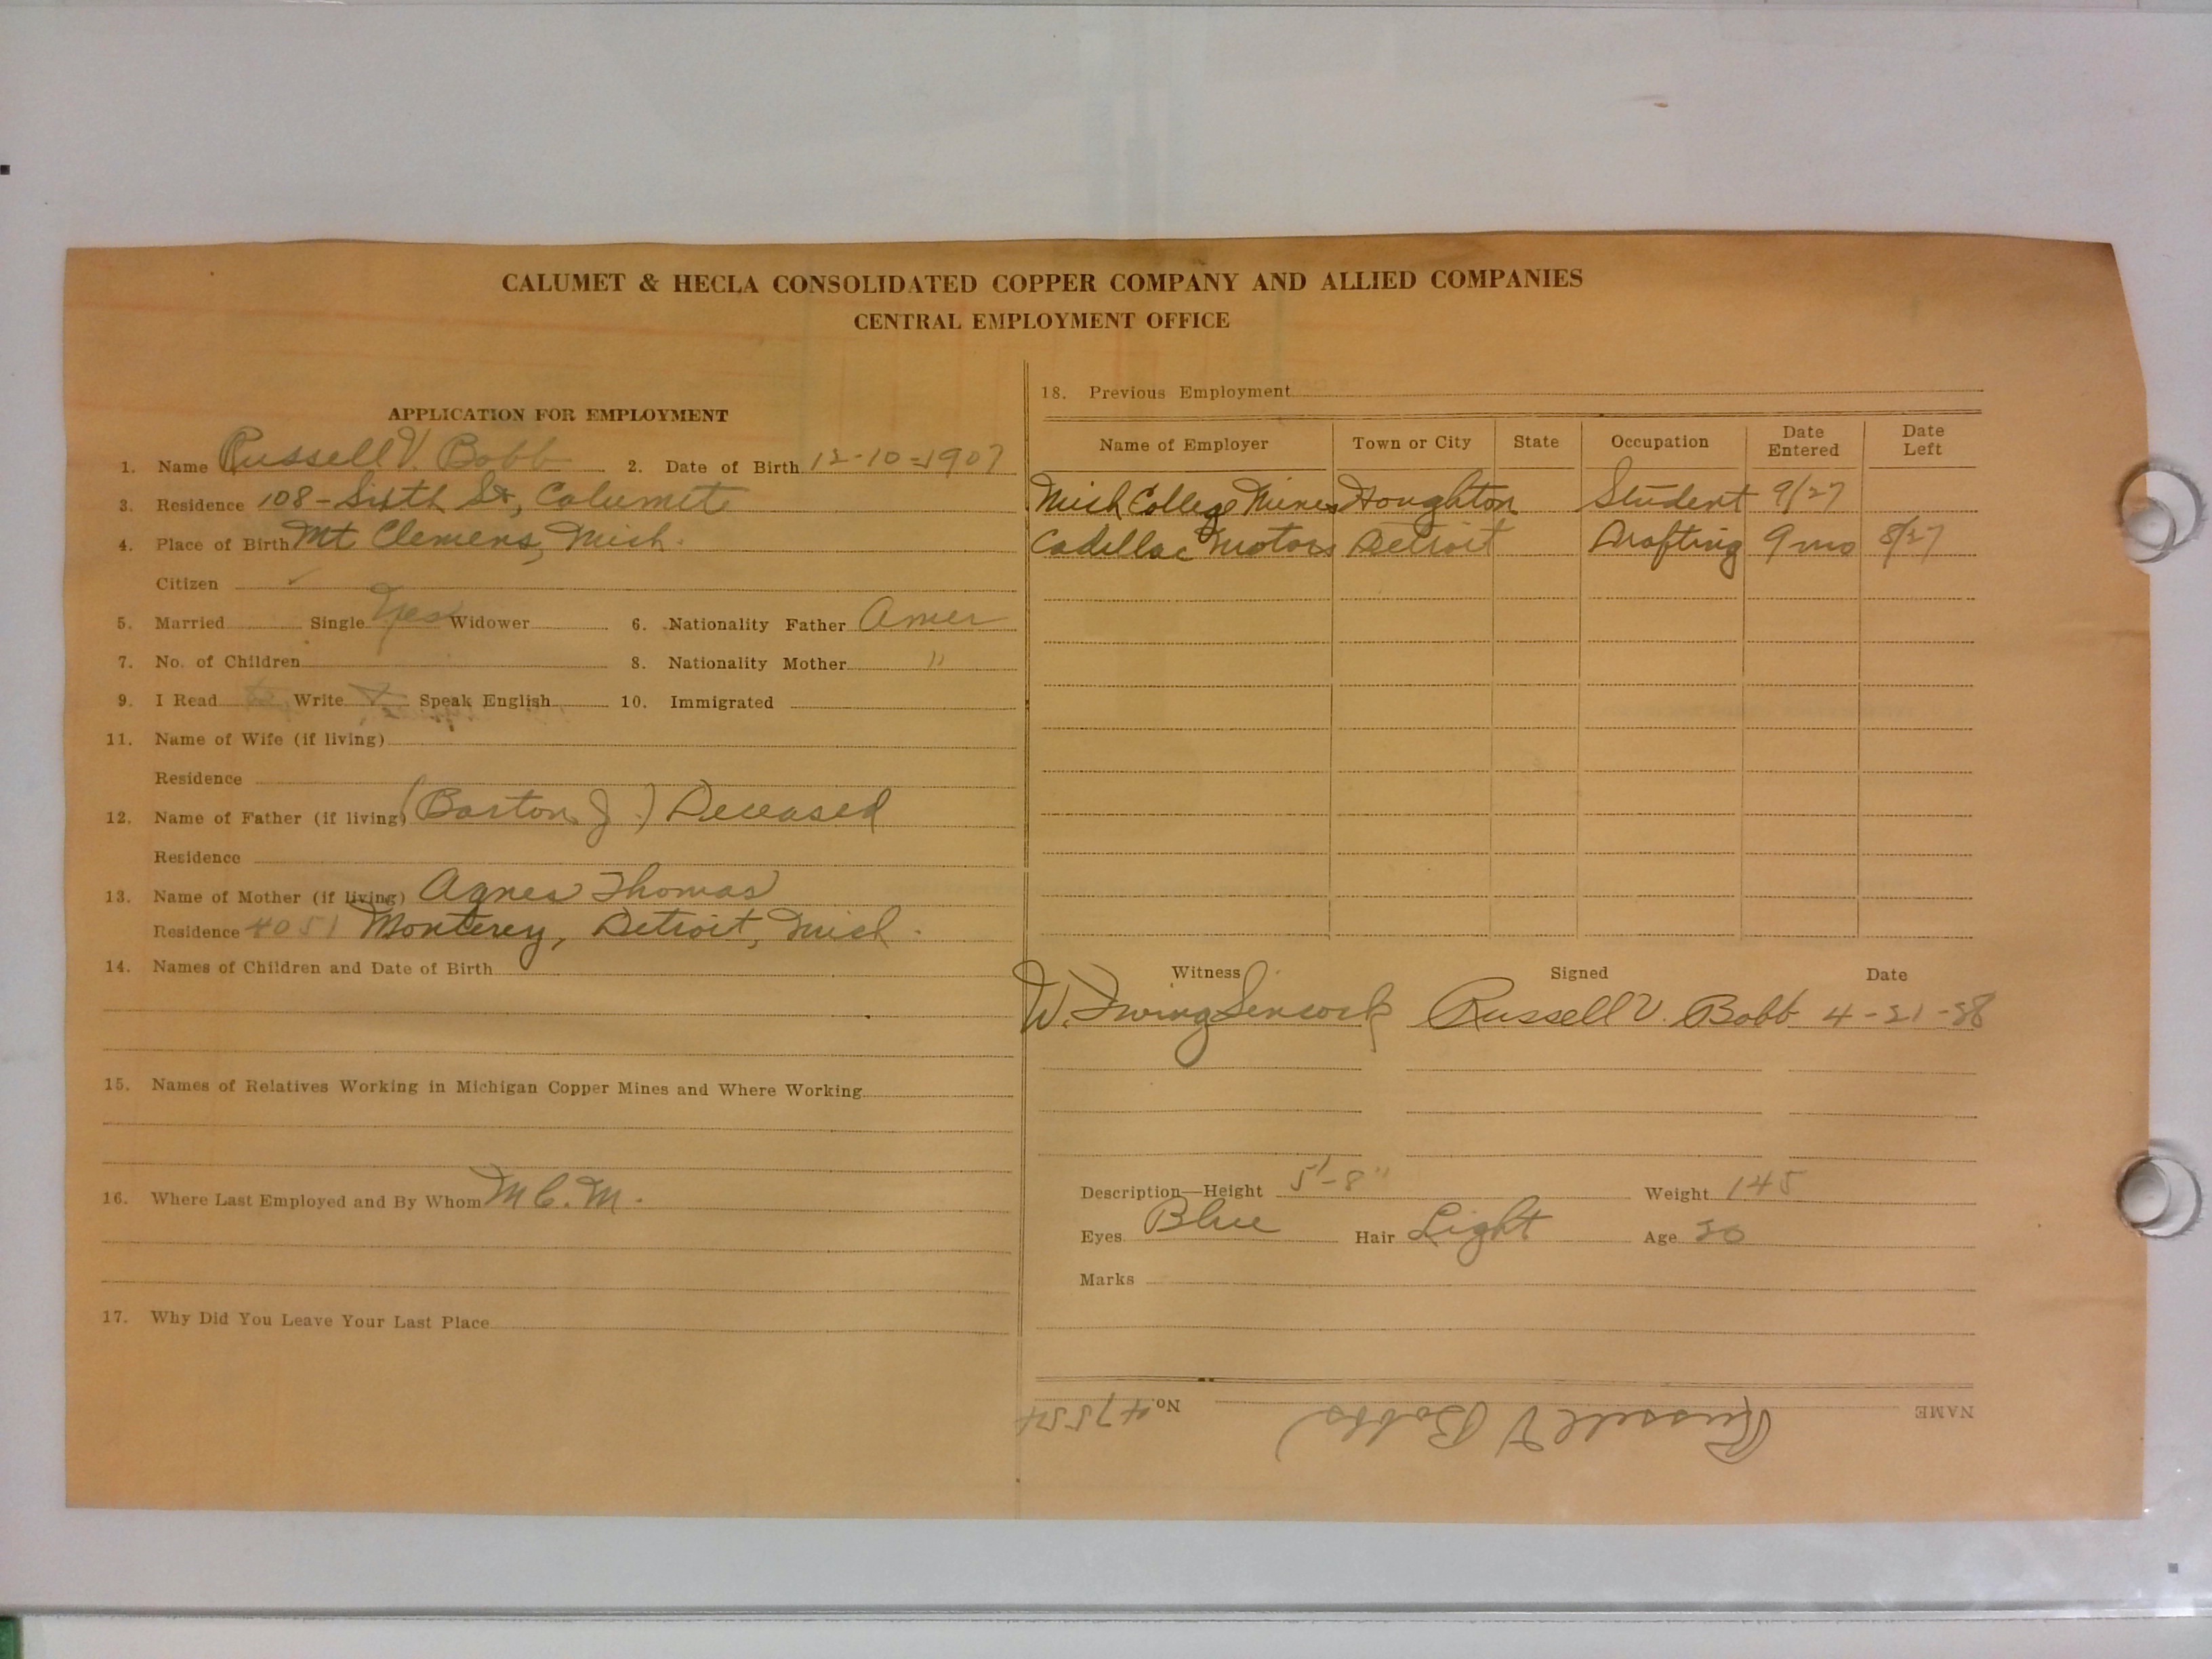 CALUMET & HECLA CONSOLIDATED COPPER COMPANY AND ALLIED COMPANIES
CENTRAL EMPLOYMENT OFFICE
APPLICATION FOR EMPLOYMENT
1. Name Russell V. Bobb 2. Date of Birth 12-10-1907
3. Residence 108-Sixth St, Calumet
4. Place of Birth Mt Clemens, Mich.
Citizen ✓
5. Married Single Yes Widower 6. Nationality Father Amer
7. No. of Children 8. Nationality Mother "
9. I Read Write Speak English 10. Immigrated
11. Name of Wife (if living)
Residence
12. Name of Father (if living) (Barton J.) Deceased
Residence
13. Name of Mother (if living) Agnes Thomas
Residence 4051 Monterey, Detroit, Mich.
14. Names of Children and Date of Birth
15. Names of Relatives Working in Michigan Copper Mines and Where Working
16. Where Last Employed and By Whom M.C.M.
17. Why Did You Leave Your Last Place
18. Previous Employment
Name of Employer Town or City State Occupation Date Entered Date Left
Mich College Mines Houghton Student 9/27
Cadillac Motors Detroit Drafting 9 mo 8/27
Witness Signed Date
W. Irving Russell V. Bobb 4-21-28
Description—Height 5'-8" Weight 145
Eyes Blue Hair Light Age 20
Marks
NAME Russell V Bobb No.